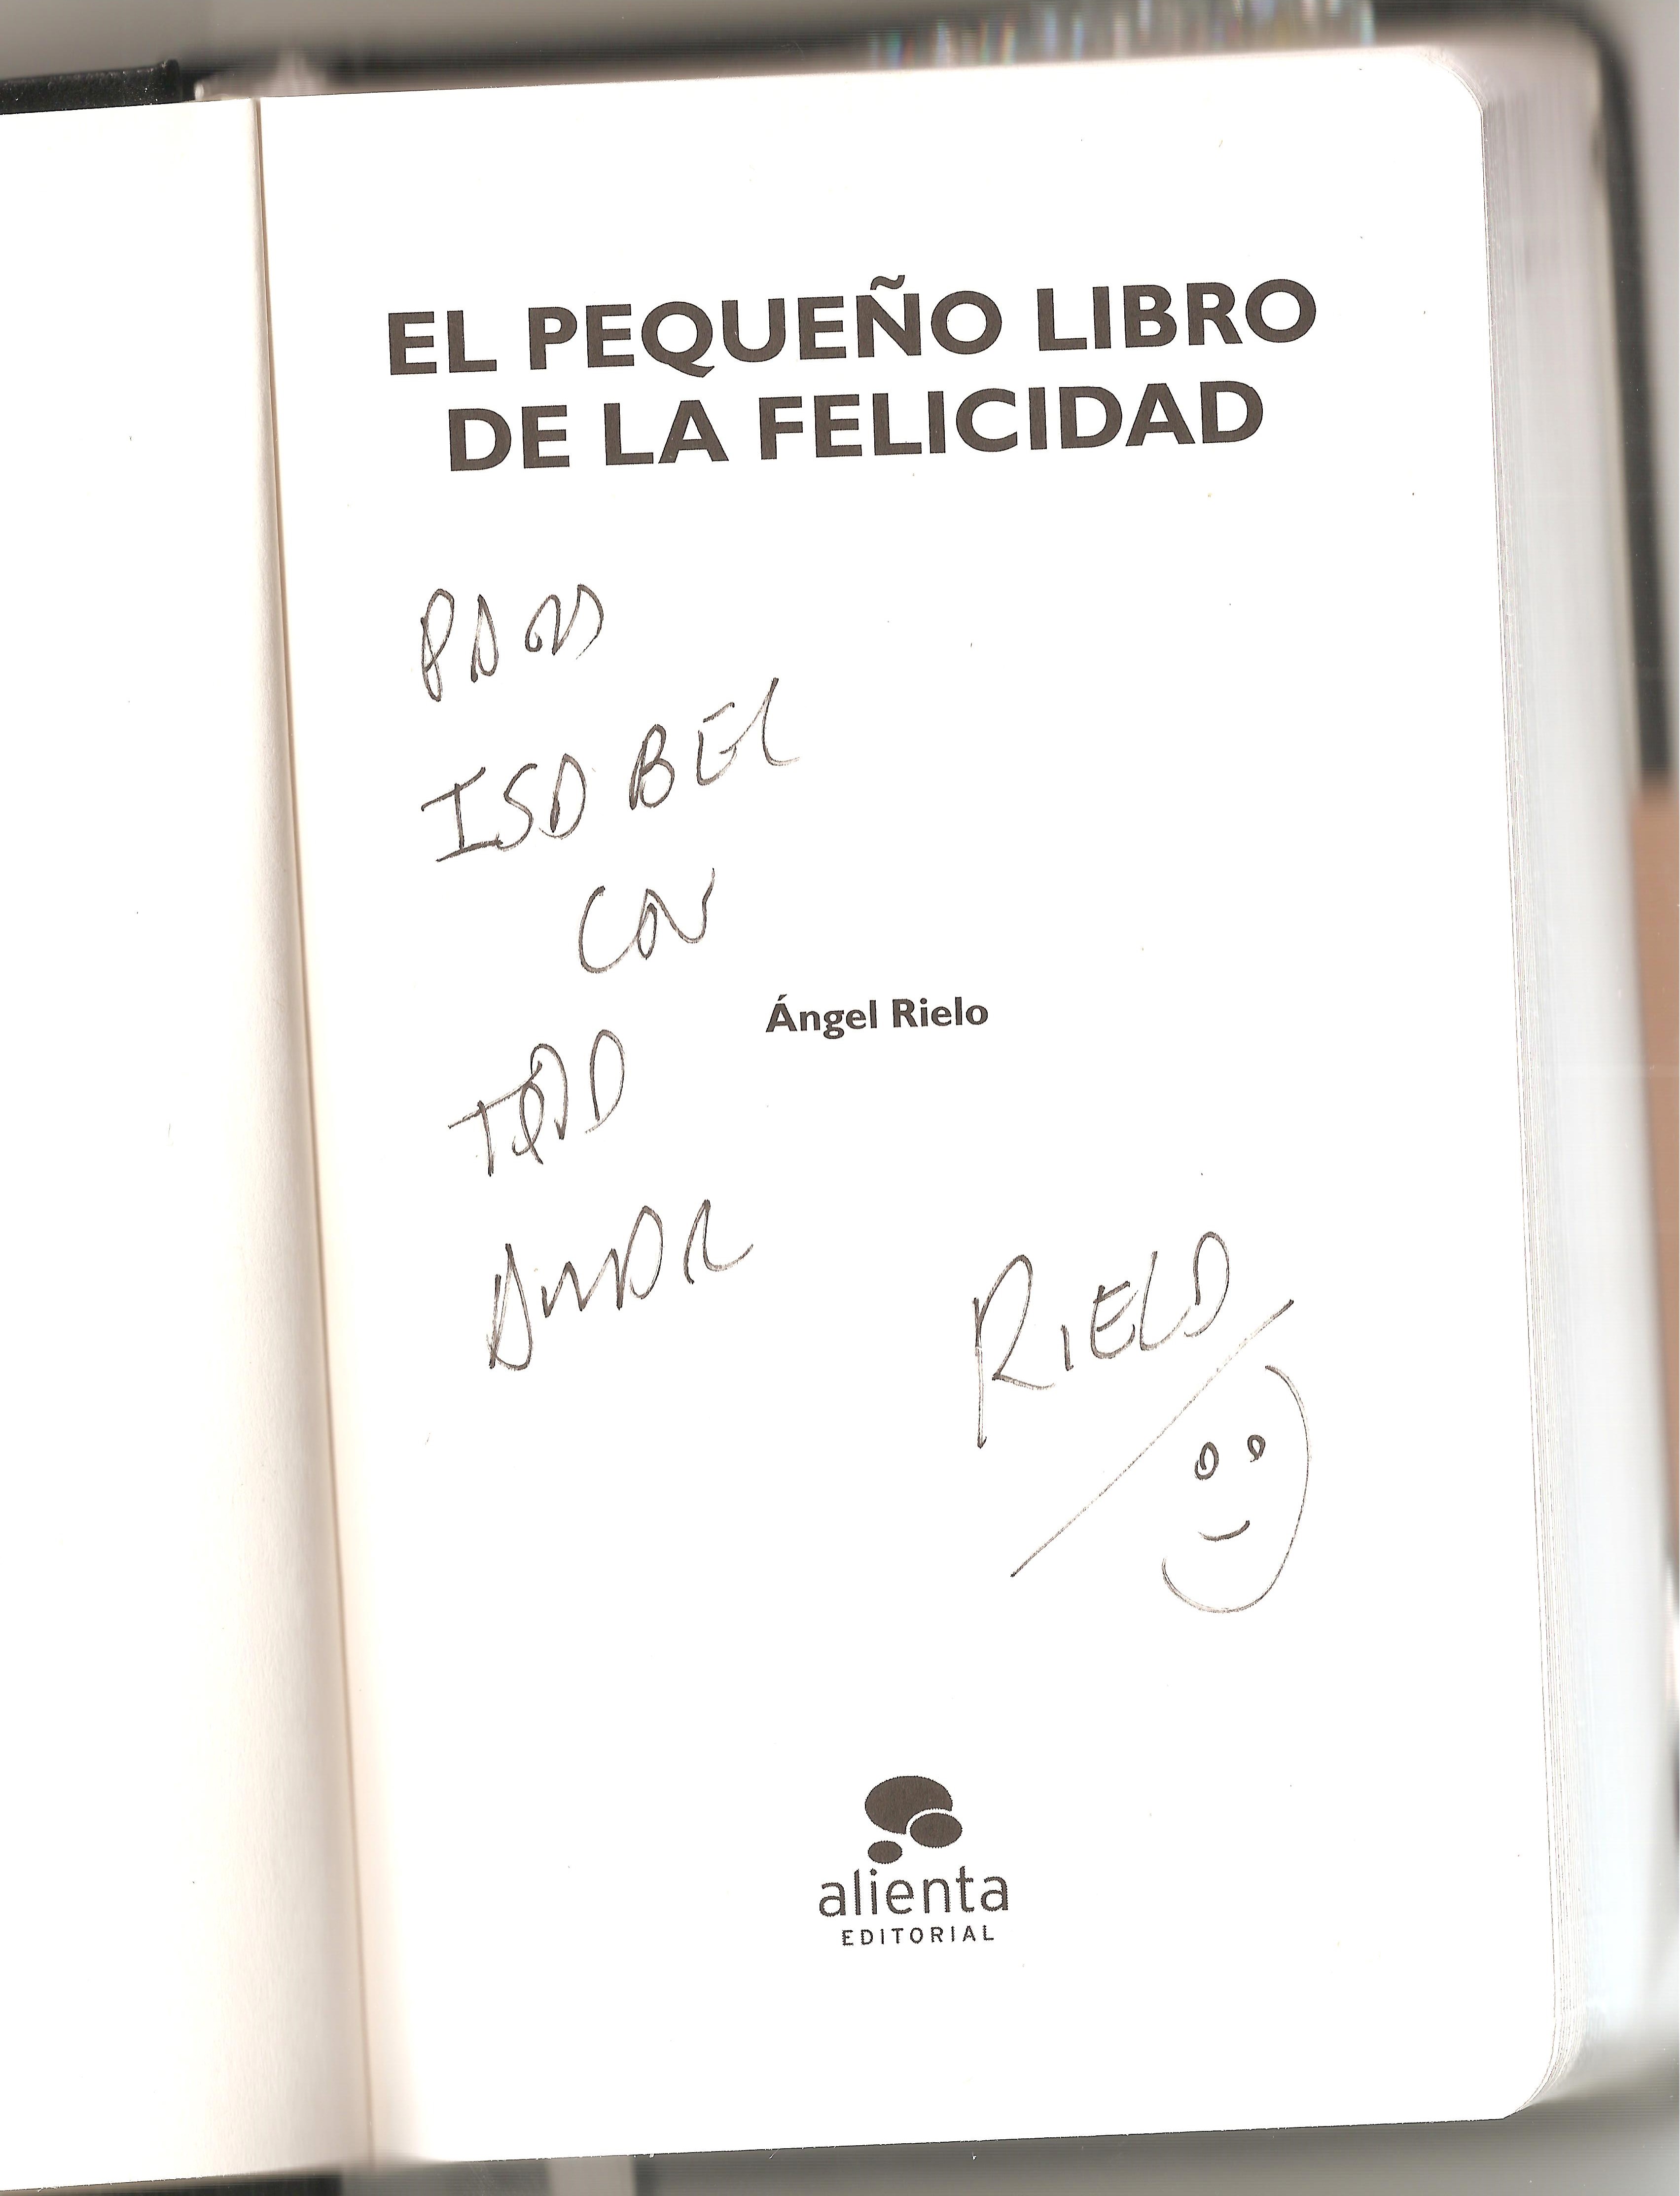 EL PEQUEÑO LIBRO
DE LA FELICIDAD
PARA
ISABEL
CON
Ángel Rielo
TODO
AMOR
RIELO
alienta
EDITORIAL